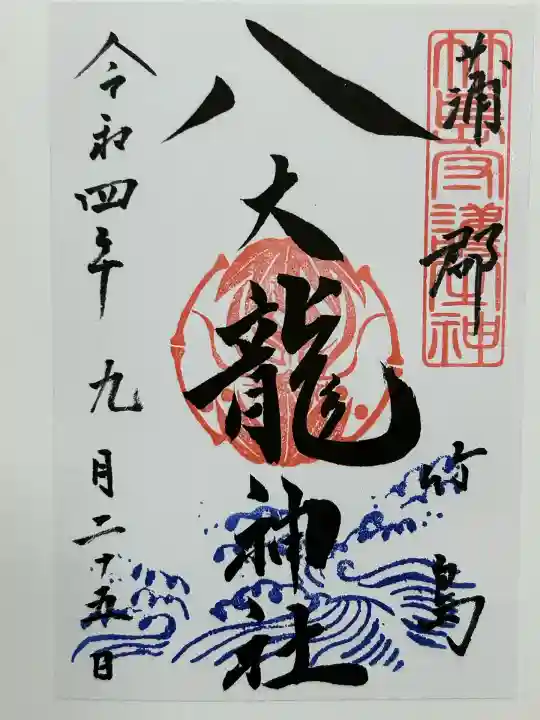 蒲郡 竹島
竹島守護神
八大龍神社
令和四年 九月二十五日